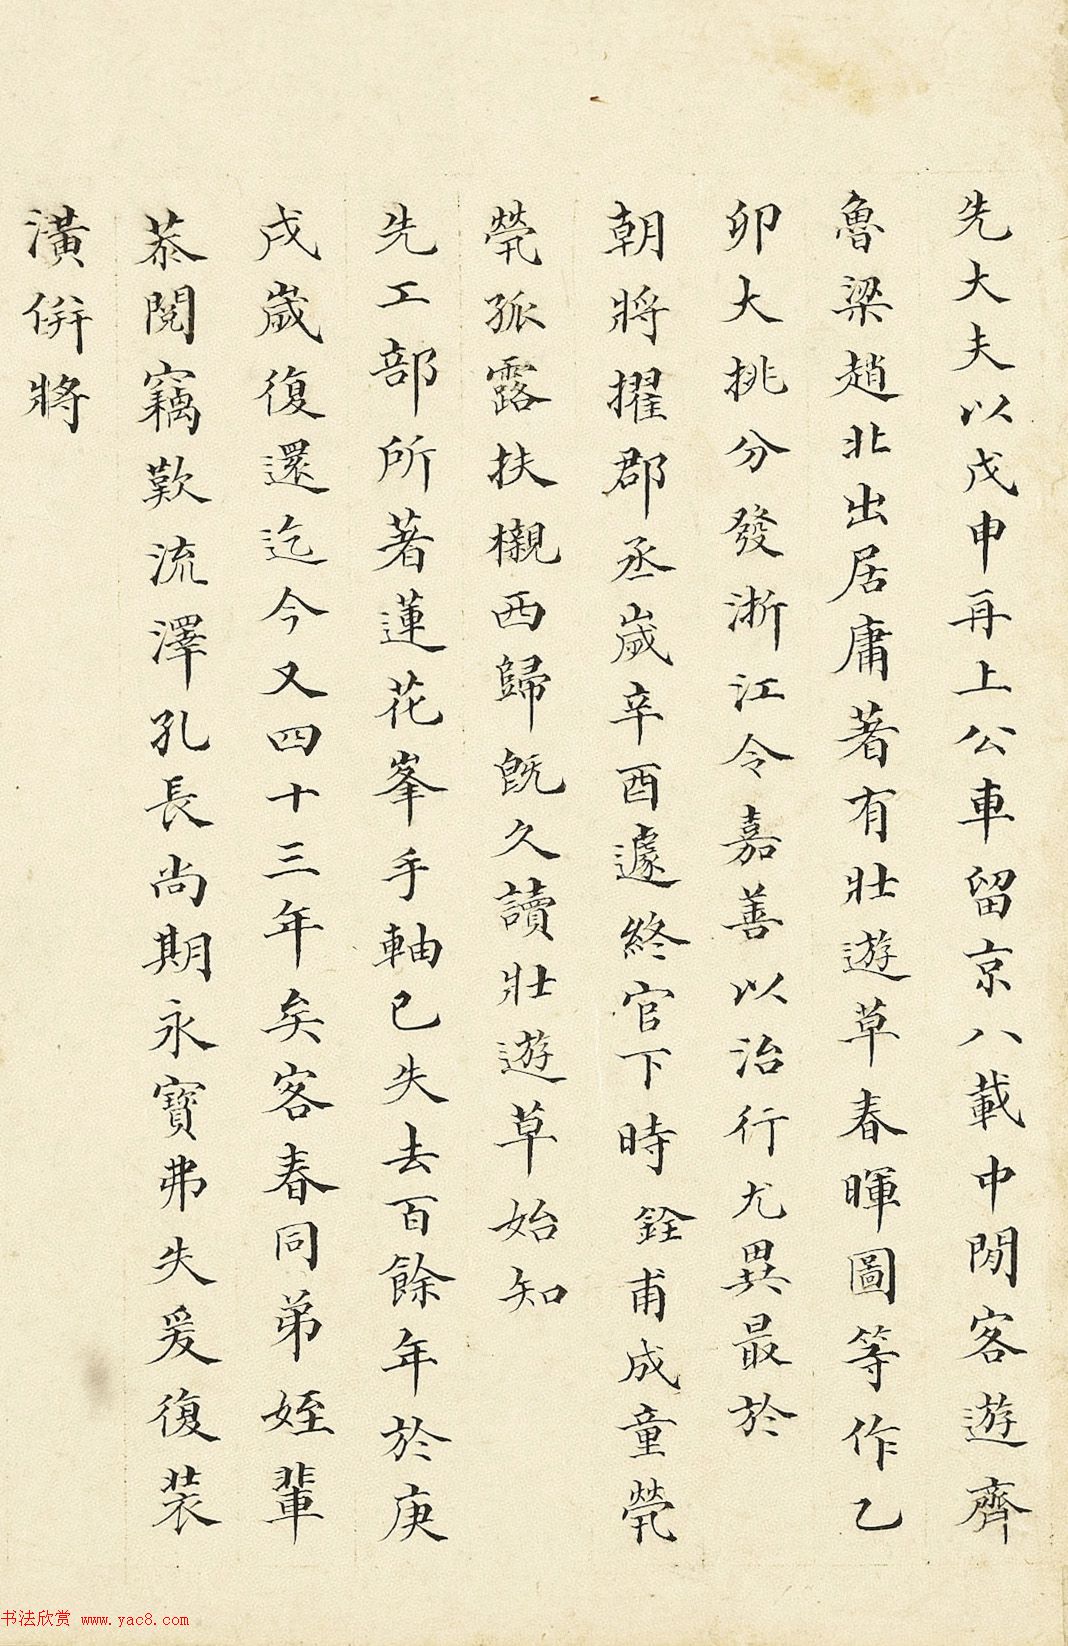 先大夫以戊申再上公車留京八載中閒客遊齊
魯梁趙北出居庸著有壯遊草春暉圖等作乙
卯大挑分發浙江令嘉善以治行尤異最於
朝將擢郡丞歲辛酉遽終官下時銓甫成童煢
煢孤露扶櫬西歸旣久讀壯遊草始知
先工部所著蓮花峯手軸已失去百餘年於庚
戌歲復還迄今又四十三年矣客春同弟姪輩
恭閱竊歎流澤孔長尚期永寶弗失爰復装
潢併將
书法欣赏 www.yac8.com